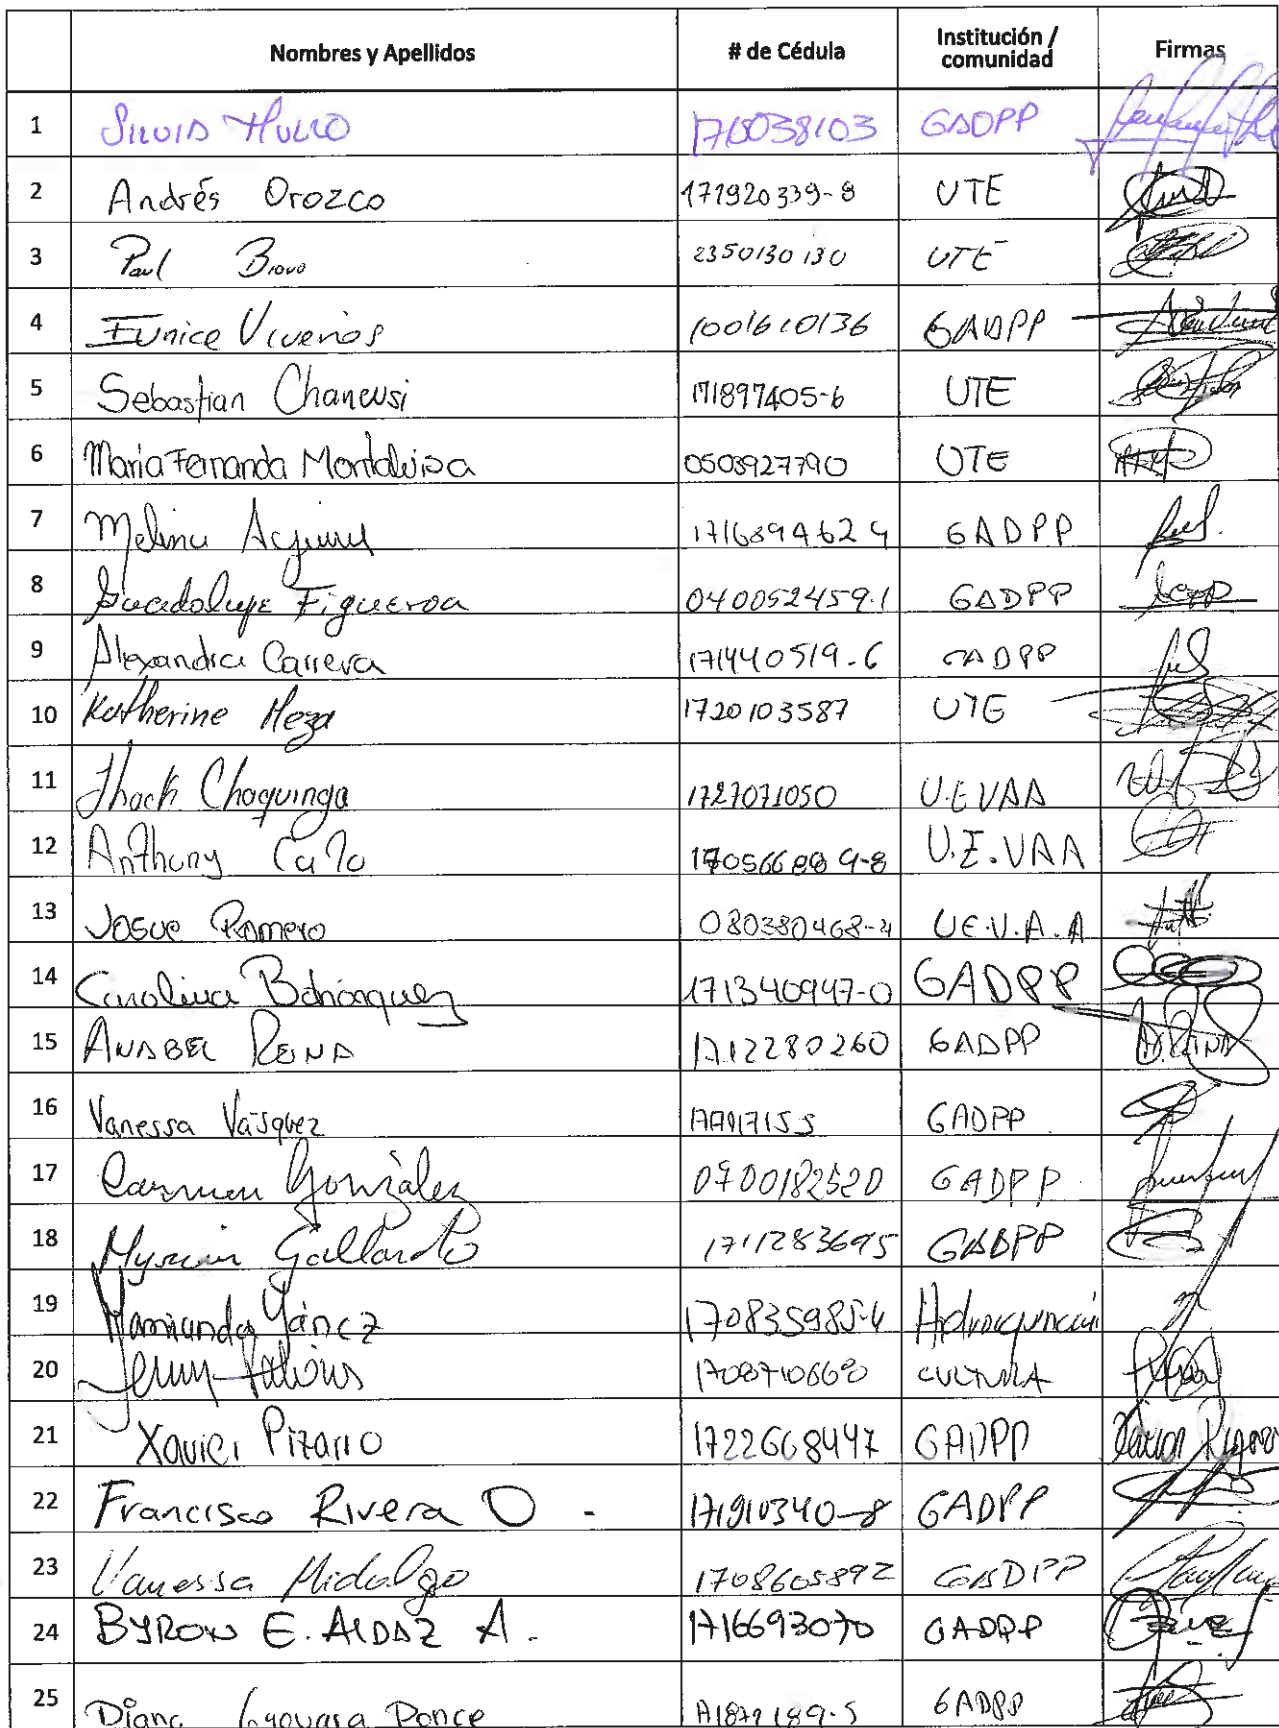 Nombres y Apellidos # de Cédula Institución / comunidad Firmas
1 GADPP
2 Andrés Orozco 171920339-8 UTE
3 Paul Bravo 2350130130 UTE
4 Eunice Viveros 1001610136 GADPP
5 Sebastian Chancusi 171897405-6 UTE
6 Maria Fernanda Montaluisa 0503927790 UTE
7 Melina GADPP
8 Guadalupe Figueroa 040052459-1 GADPP
9 Alexandra Carrera 171440519-6 GADPP
10 Katherine Meza 1720103587 UTE
11 Choquinga 1727071050 U.E VAA
12 Anthony U.E.VAA
13 Josue Romero 080380468-4 U.E.V.A.A
14 Carolina Bohórquez 171340947-0 GADPP
15 ANABEL REINA 1712280260 GADPP A.REINA
16 Vanessa Vásquez GADPP
17 Carmen González 0700182520 GADPP
18 Gallardo 1711283695 GADPP
19 Yánez 170835985-4
20 1708710660 CULTURA
21 Xavier Pizarro 1722668447 GADPP
22 Francisco Rivera O - 171910340-8 GADPP
23 Vanessa Hidalgo 1708605892 GADPP
24 BYRON E. AlDAZ A. 1716693070 GADPP
25 Diana Guevara Ponce GADPP